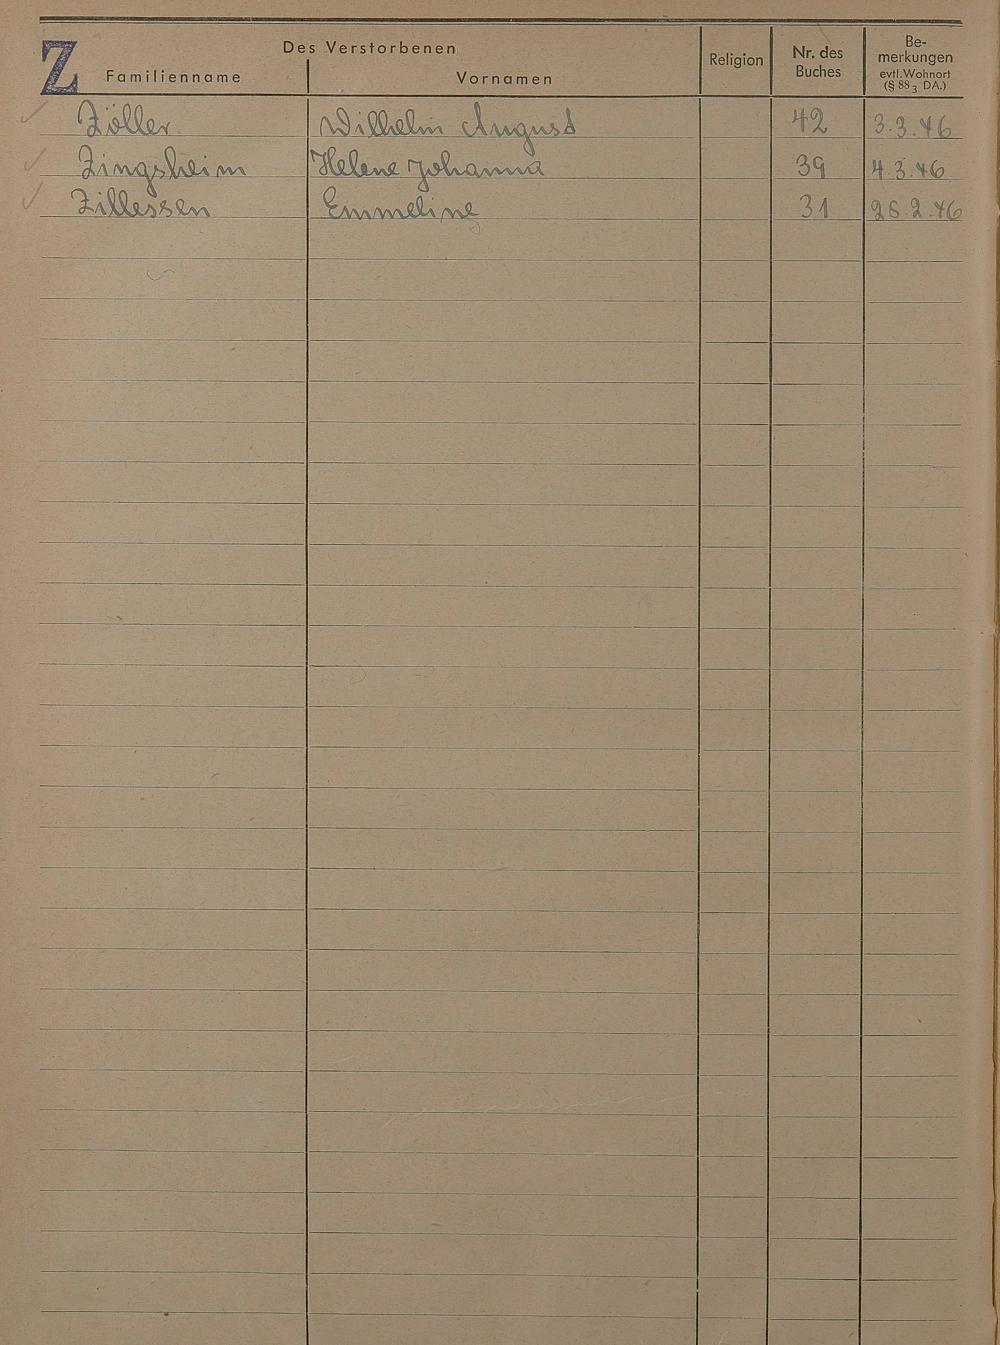 Z
Des Verstorbenen
Familienname
Vornamen
Religion
Nr. des
Buches
Be-
merkungen
evtl. Wohnort
(§ 88 3 DA.)
Zöller Wilhelm August 42 3.3.46
Zingsheim Helene Johanna 39 4.3.46
Zillessen Emmeline 31 28.2.46